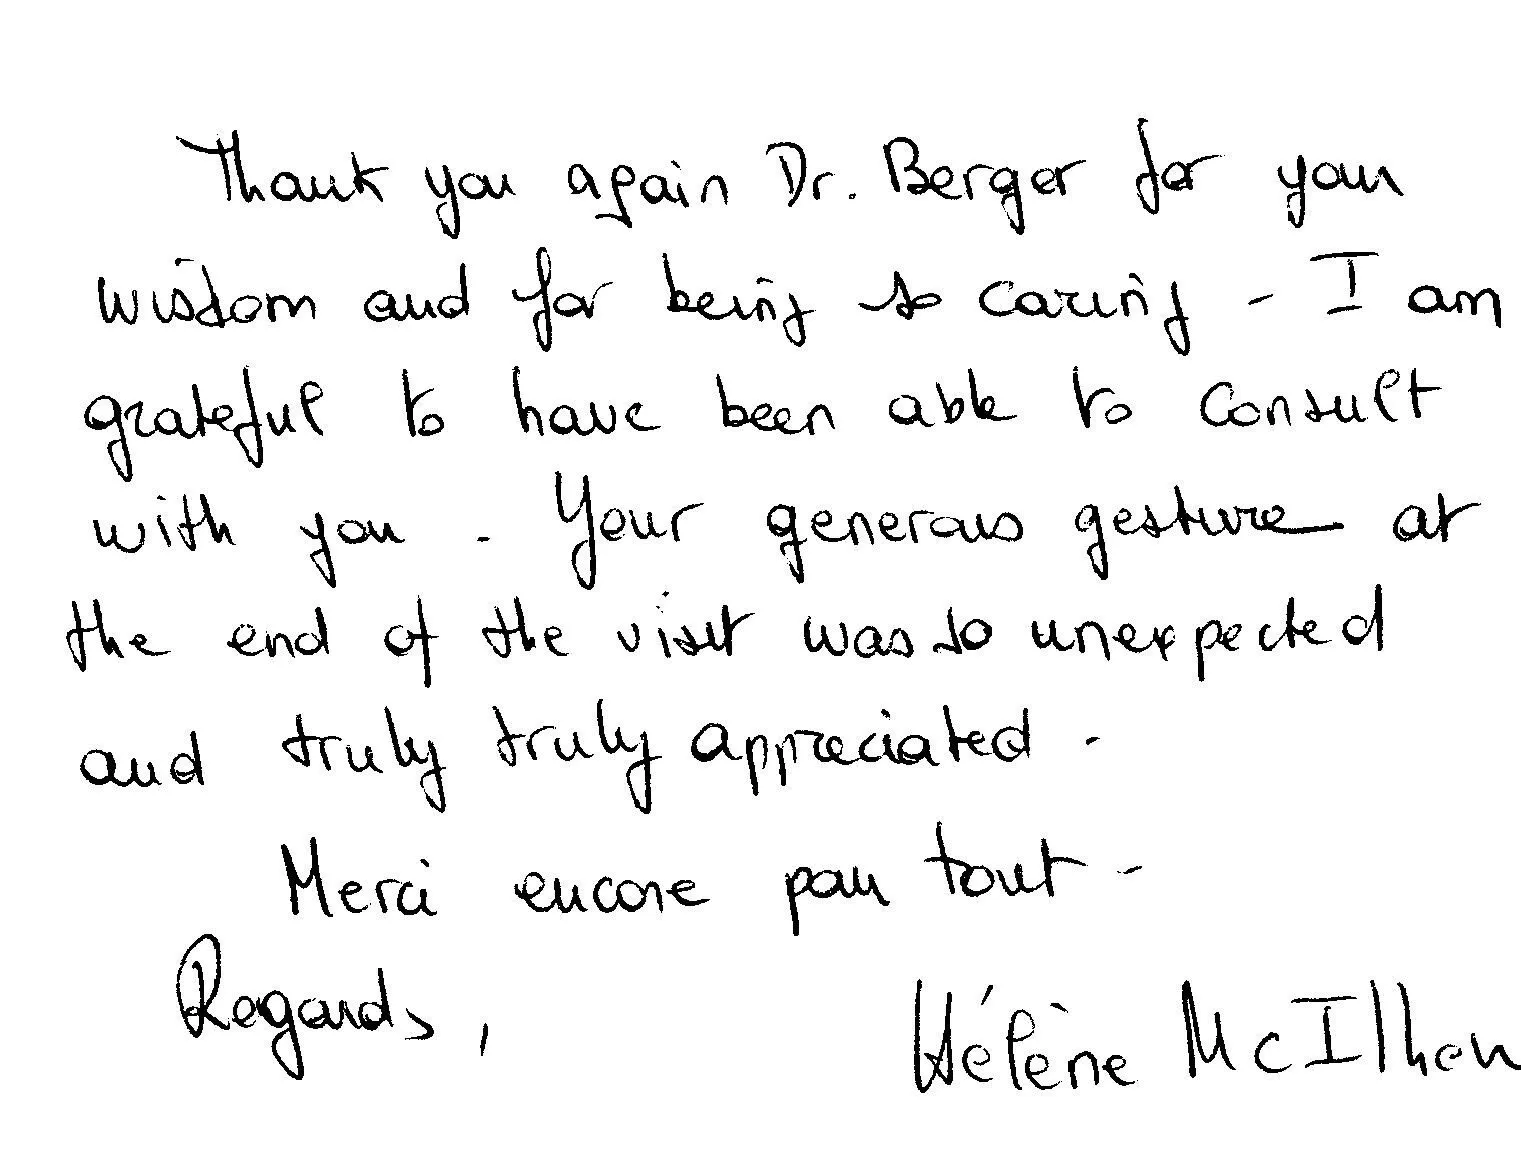 Thank you again Dr. Berger for your
wisdom and for being so caring - I am
grateful to have been able to consult
with you. Your generous gesture at
the end of the visit was so unexpected
and truly truly appreciated -
Merci encore pour tout -
Regards,
Hélène McIlhon